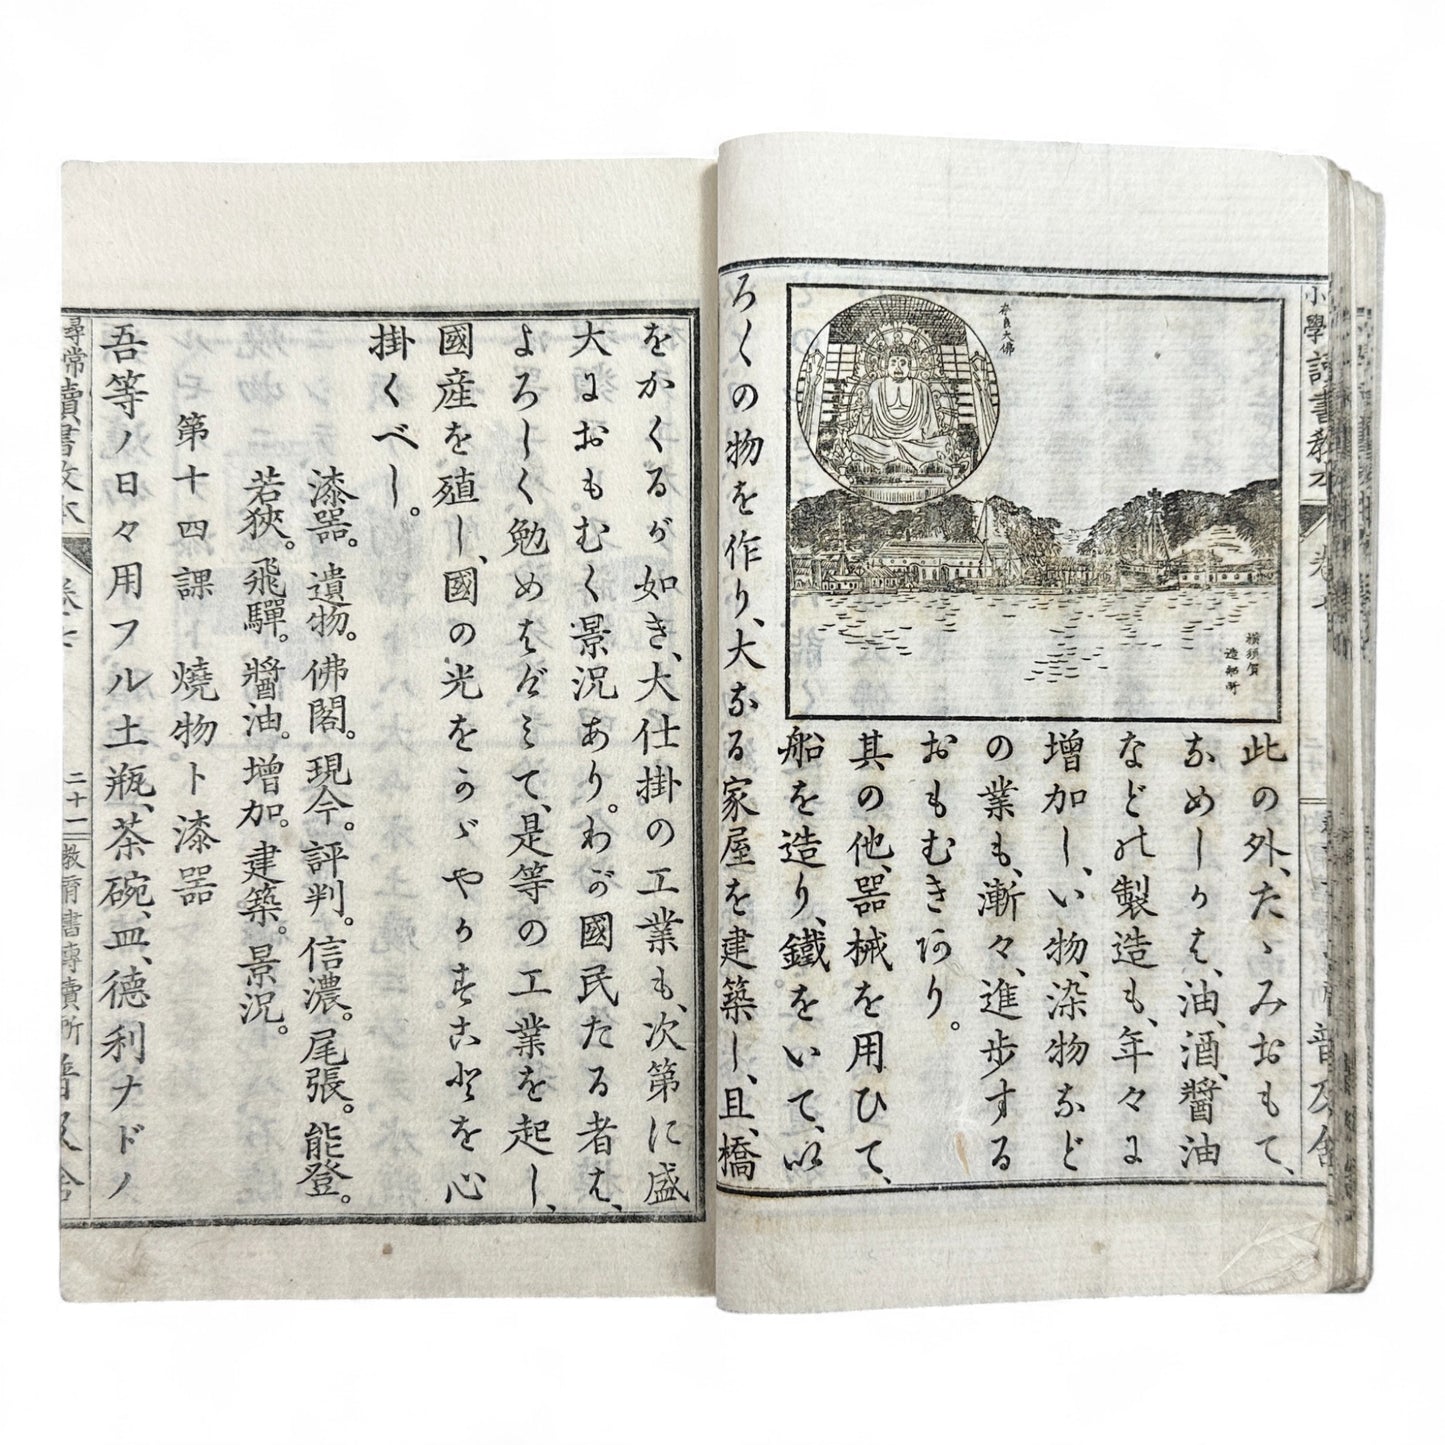 小學讀書教本
卷七
普及舍
奈良大佛
横須賀
造船所
此の外、たゝみおもて、
なめしがは、油、酒、醤油
などの製造も、年々に
増加し、い物、染物など
の業も、漸々、進歩する
おもむきあり。
其の他、器械を用ひて、
船を造り、鐵をいて、以
ろくの物を作り、大なる家屋を建築し、且、橋
をかくるが如き、大仕掛の工業も、次第に盛
大におもむく景況あり。わが國民たる者は、
よろしく勉めはげみて、是等の工業を起し、
國産を殖し、國の光をかゞやかすことを心
掛くべし。
漆器。遺物。佛閣。現今。評判。信濃。尾張。能登。
若狹。飛驒。醤油。増加。建築。景況。
第十四課　燒物ト漆器
吾等ノ日々用フル土瓶、茶碗、皿、德利ナドノ
尋常讀書教本
卷七
二十一
教育書專賣所
普及舍